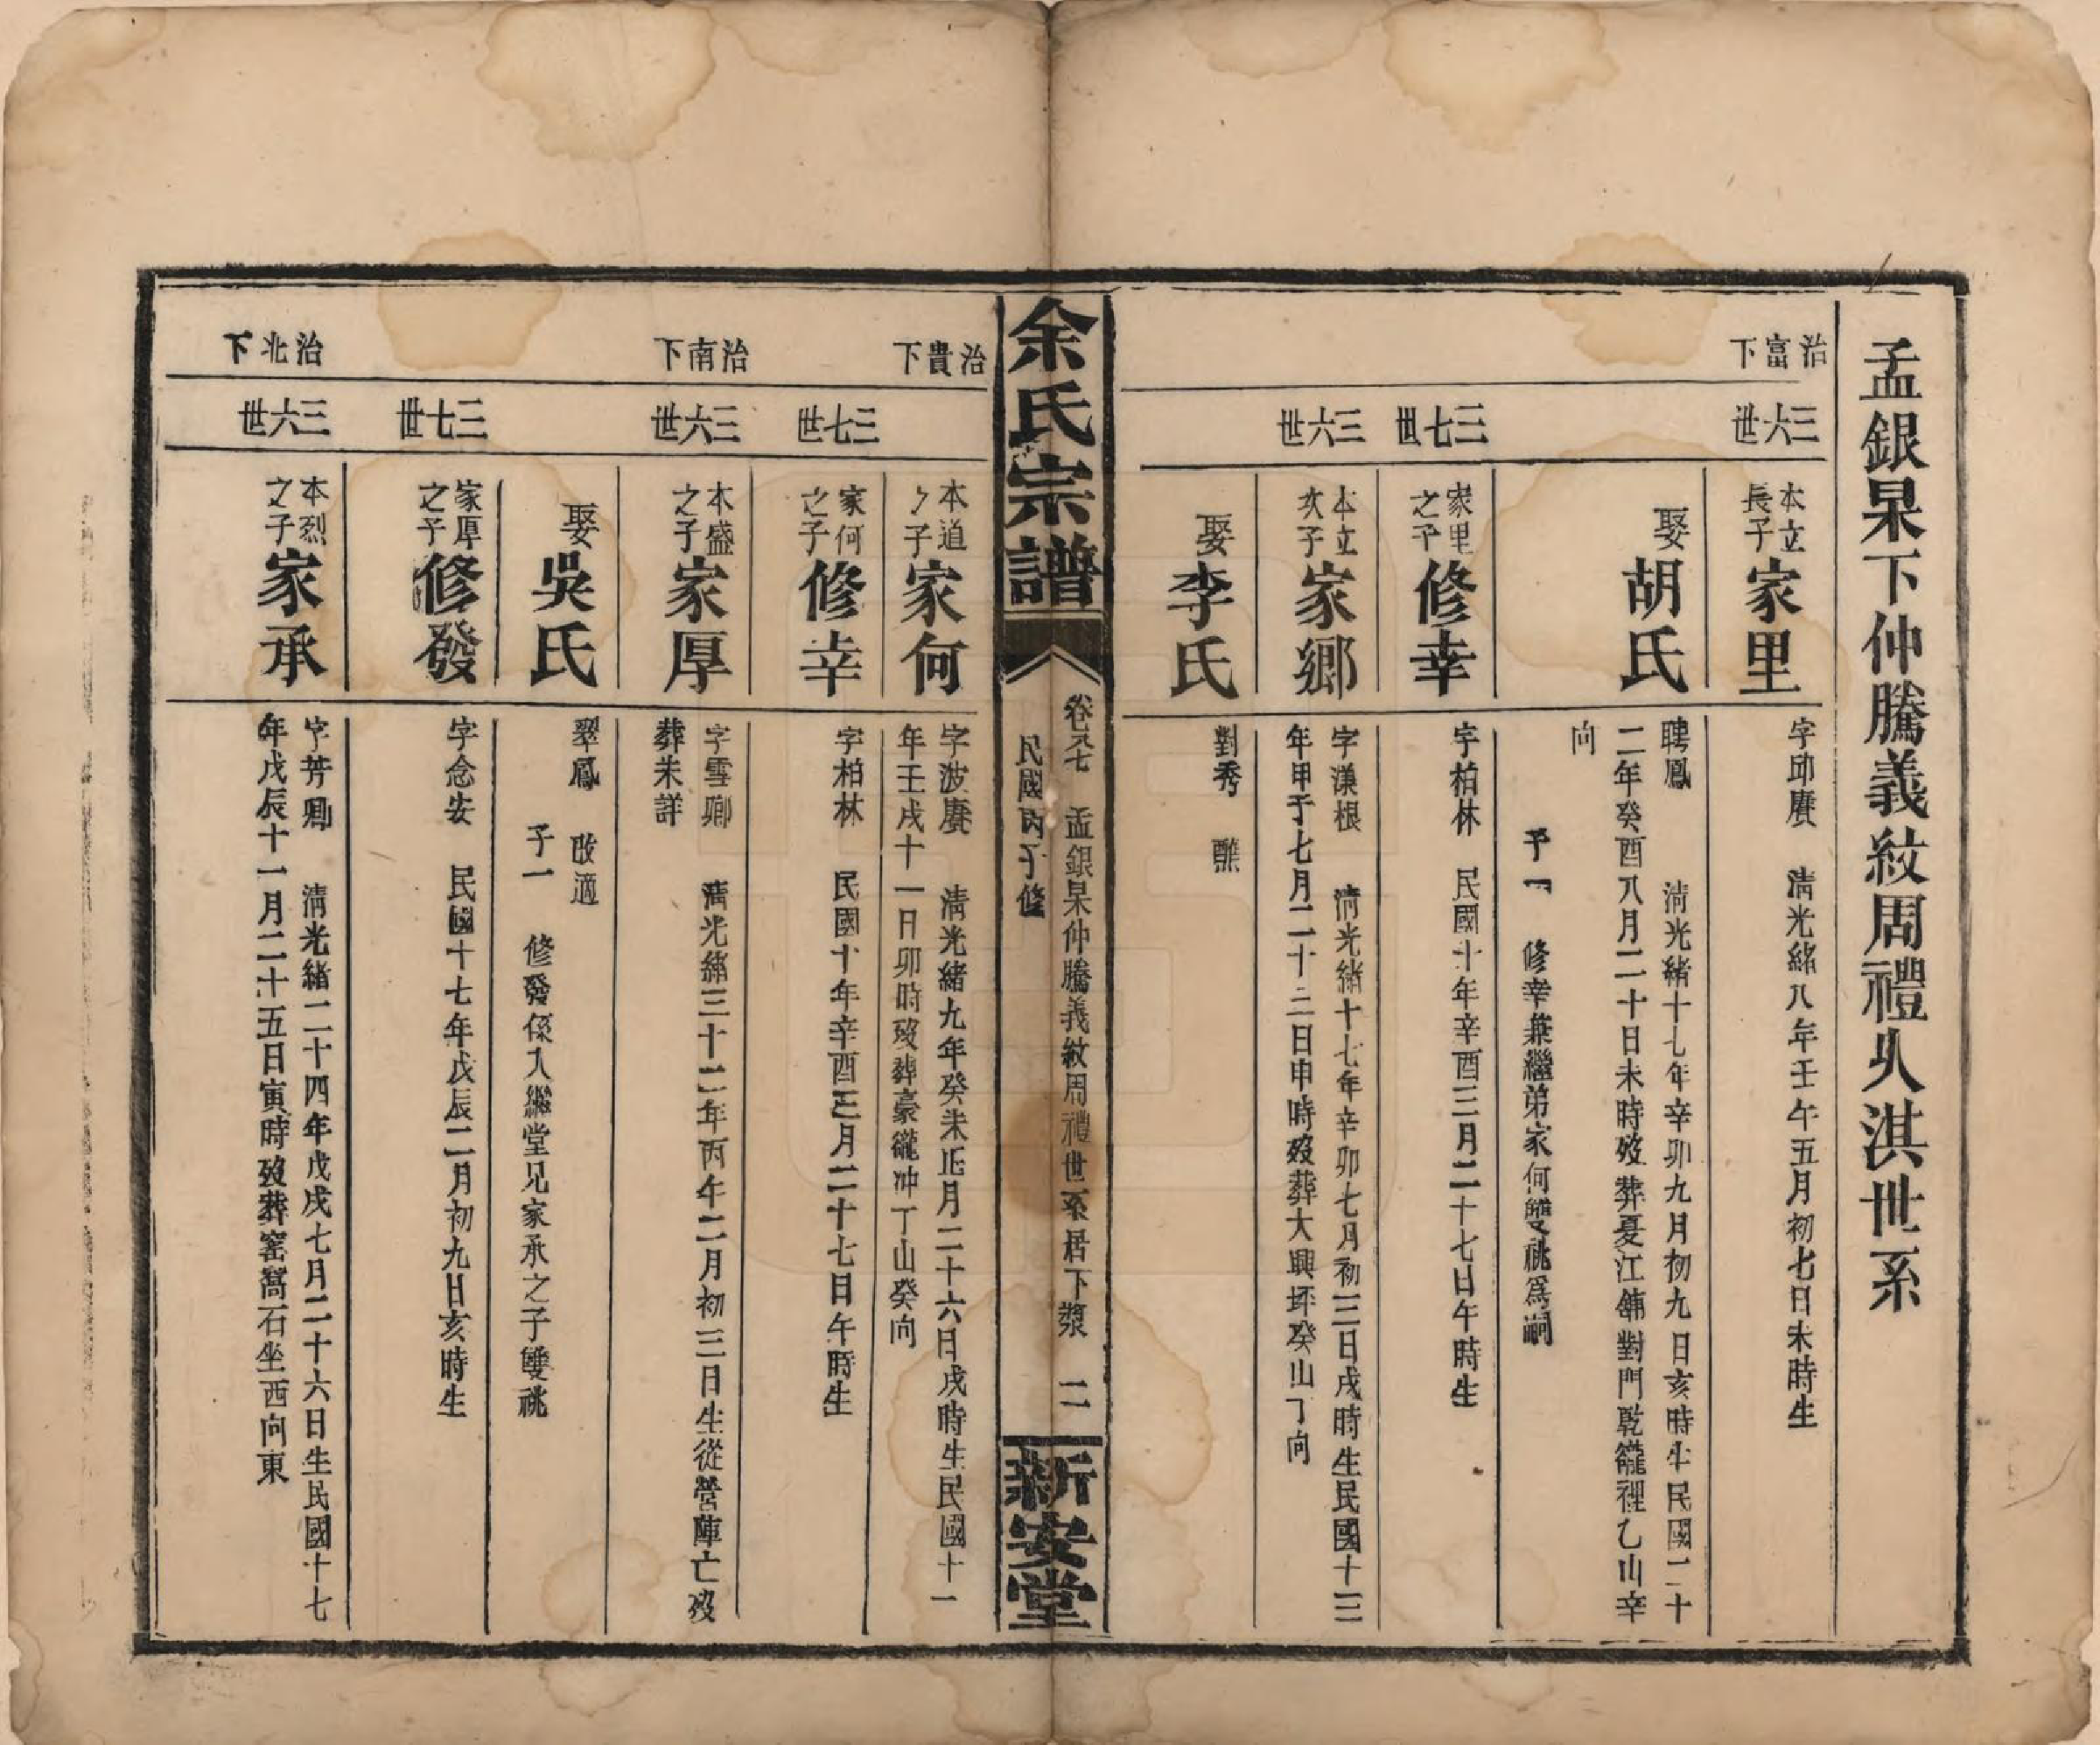 孟銀杲下仲騰義紋周禮火淇世系
治富下
三六世
本立長子 家里
字邱賡 清光緒八年壬午五月初七日未時生
娶 胡氏
聘鳳 清光緒十七年辛卯九月初九日亥時生民國二十
二年癸酉八月二十日未時歿葬憂江鋪對門乾巃裡乙山辛
向
子一 修幸兼繼弟家何雙祧爲嗣
三七世
家里之子 修幸
字柏林 民國十年辛酉三月二十七日午時生
三六世
本立次子 家鄉
字漢根 清光緒十七年辛卯七月初三日戌時生民國十三
年甲子七月二十二日申時歿葬大興坪癸山丁向
娶 李氏
對秀 醮
余氏宗譜
卷 七 孟銀杲仲騰義紋周禮世系居下漿 二
民國丙子修
新安堂
治貴下
本道之子 家何
字波賡 清光緒九年癸未正月二十六日戌時生民國十一
年壬戌十一日卯時歿葬豪巃冲丁山癸向
三七世
家何之子 修幸
字柏林 民國十年辛酉三月二十七日午時生
治南下
三六世
本盛之子 家厚
字雪卿 清光緒三十二年丙午二月初三日生從營陣亡歿
葬未詳
娶 吳氏
翠鳳 改適
子一 修發係入繼堂兄家承之子雙祧
三七世
家厚之子 修發
字念安 民國十七年戊辰二月初九日亥時生
治北下
三六世
本烈之子 家承
字芳卿 清光緒二十四年戊戌七月二十六日生民國十七
年戊辰十一月二十五日寅時歿葬窰窩石坐西向東